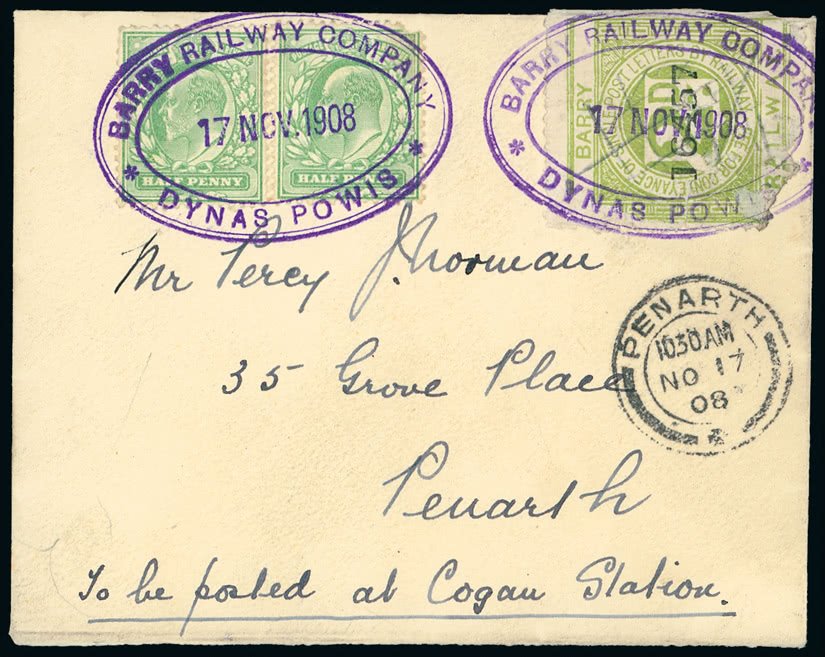 BARRY RAILWAY COMPANY
17 NOV.1908
* DYNAS POWIS *
HALF PENNY
HALF PENNY
BARRY RAILWAY COMPANY
17 NOV. 1908
* DYNAS POWIS
BARRY
POST LETTERS BY RAILWAY
CONVEYANCE OF
Mr Percy J. Norman
35 Grove Place
Penarth
To be posted at Cogan Station.
PENARTH
1030AM
NO 17
08